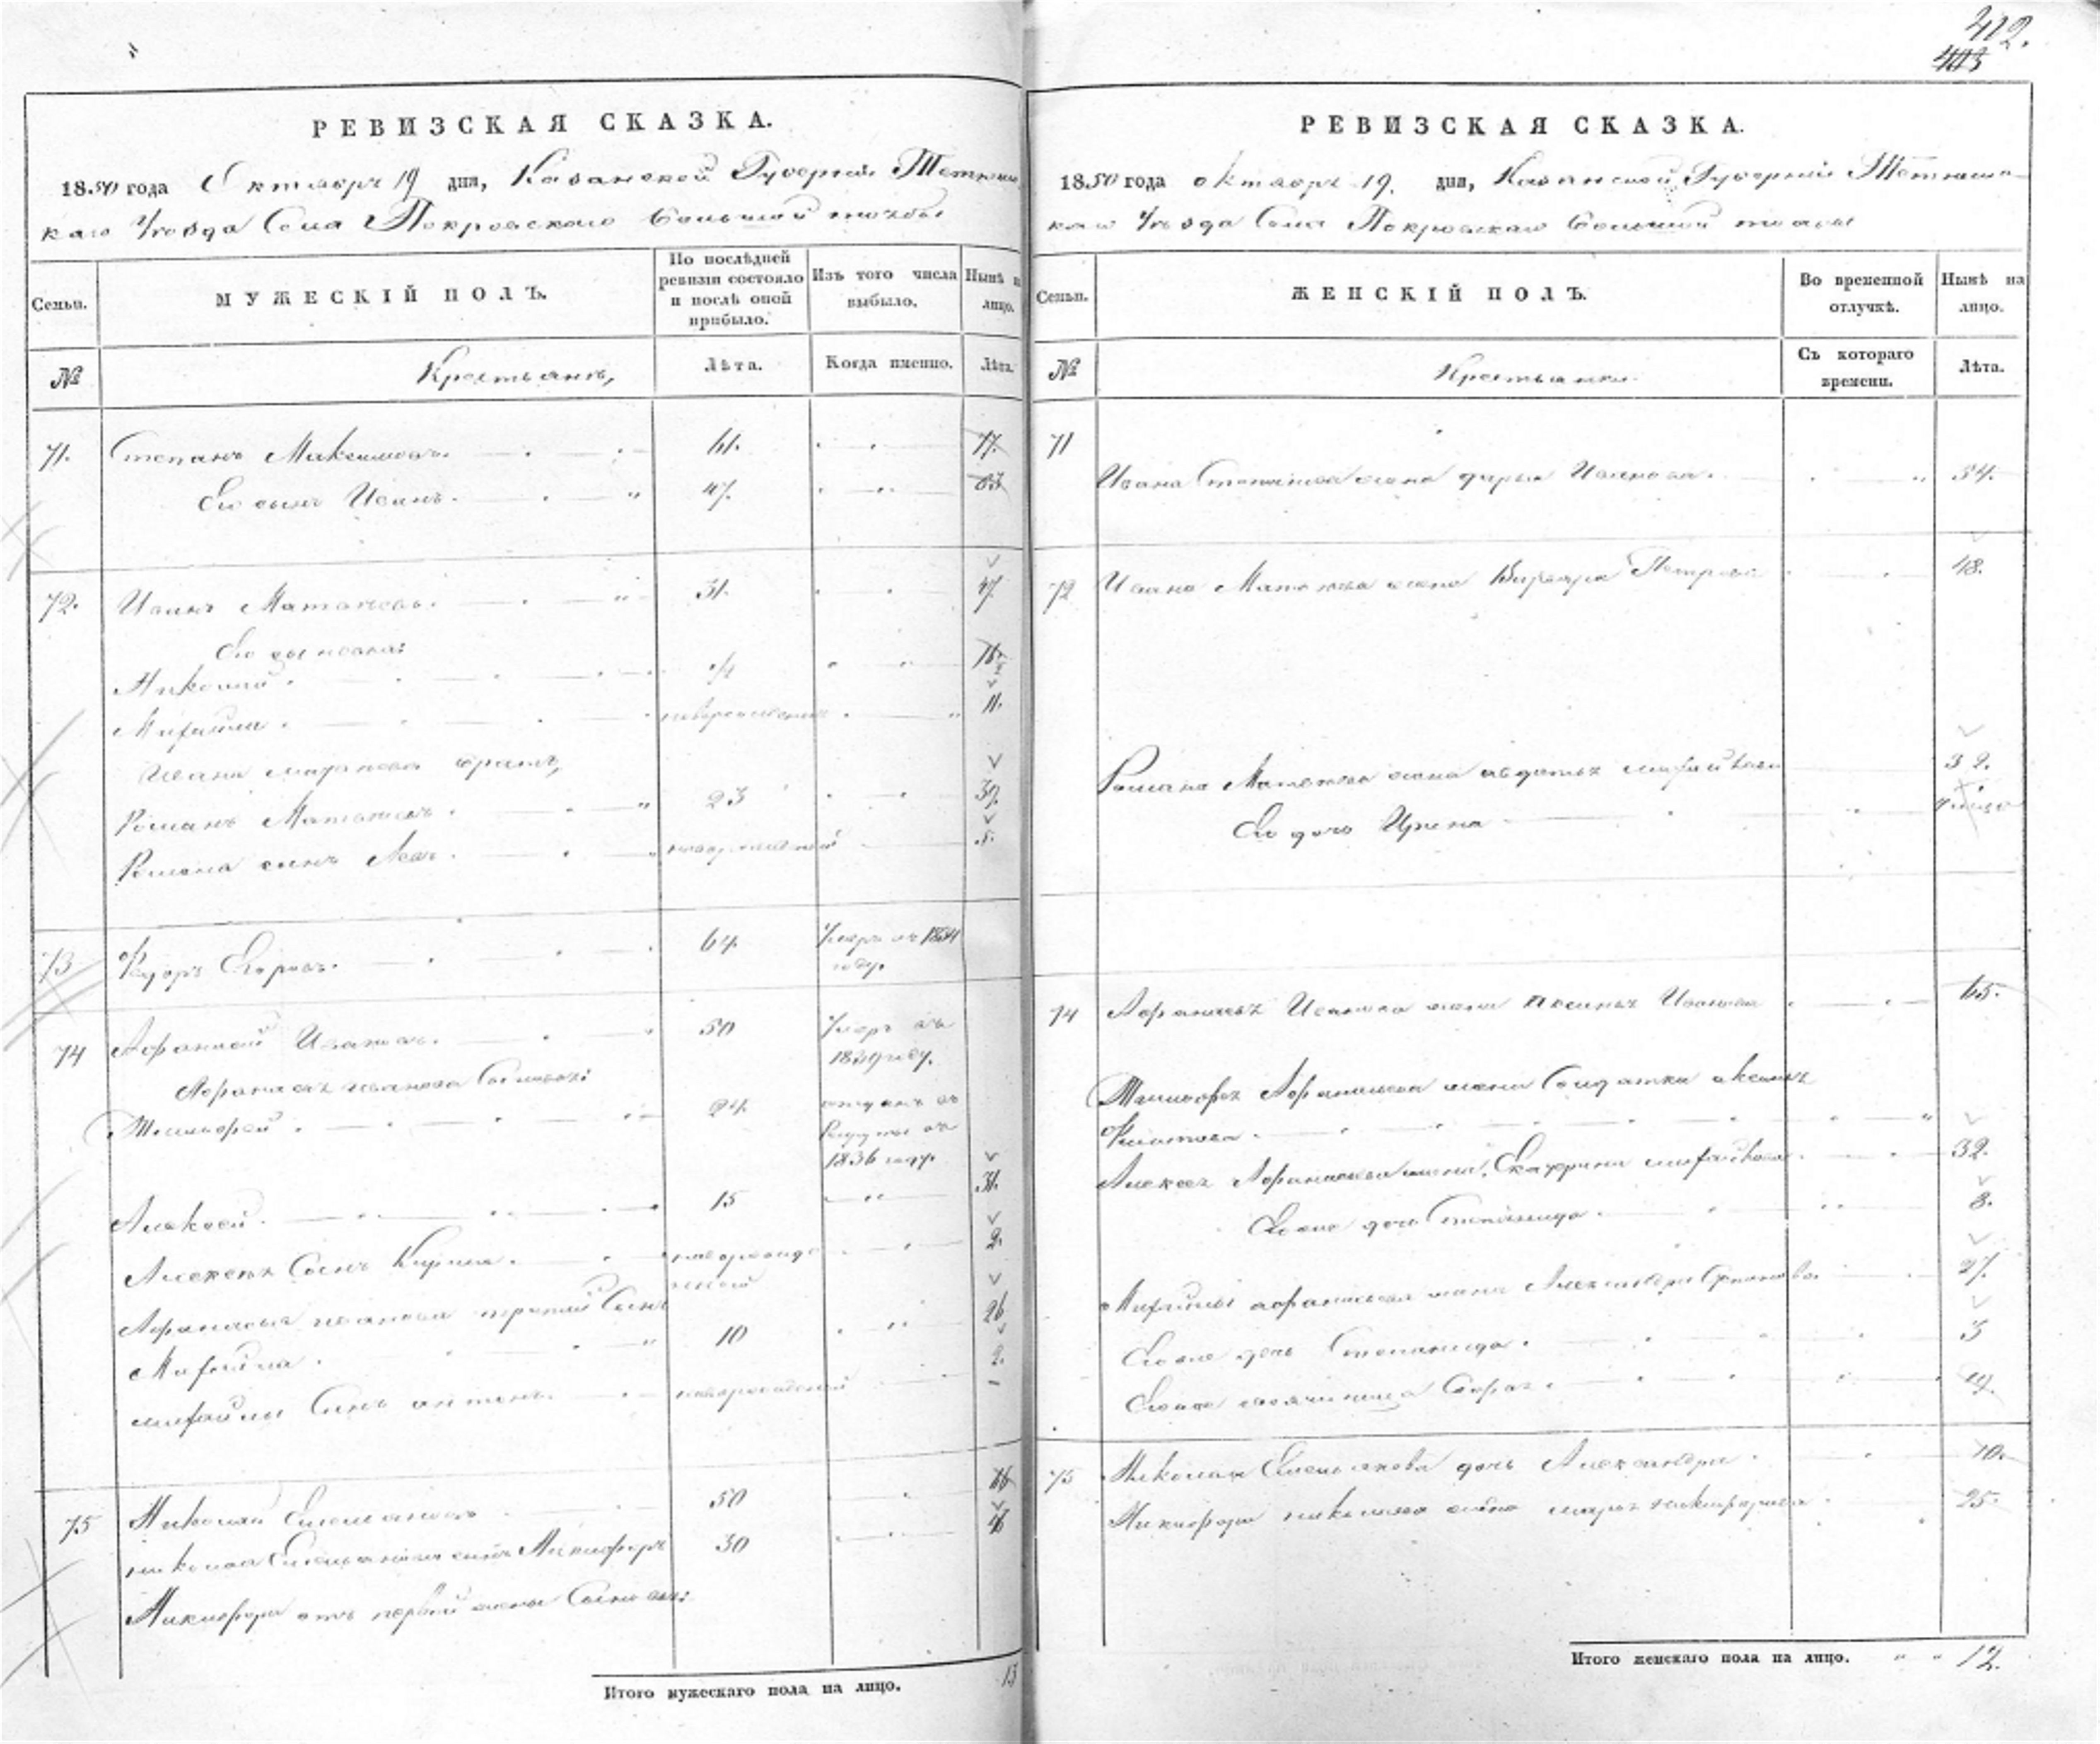 412.
403
РЕВИЗСКАЯ СКАЗКА.
1850 года Октября 19 дня, Казанской Губерніи Тетюш
каго Уѣзда Села Покровскаго Большой тожбы
Семьи.
МУЖЕСКІЙ ПОЛЪ.
По послѣдней ревизіи состояло и послѣ оной прибыло.
Изъ того числа выбыло.
Нынѣ на лицо.
№
Крестьянъ,
Лѣта.
Когда именно.
Лѣта.
71. Степанъ Максимовъ. 61. 77.
Его сынъ Иванъ. 47. 63
72. Иванъ Матвѣевъ. 31. 47.
Его сыновья:
Николай. 1/2 16 1/2
Михайла. новорожденный 11.
Ивана Матвѣева братъ,
Романъ Матвѣевъ. 23 39.
Романа сынъ Левъ. новорожденный 5.
73 Федоръ Егоровъ. 64. Умеръ въ 1834
году.
74 Афанасей Ивановъ. 50 Умеръ въ
1839 году.
Афанасья Иванова Сыновья:
Тимофей. 24. отданъ въ
Рекруты въ
1836 году.
Алексей. 15 31.
Алексея Сынъ Кирила. новорожде
нной 2.
Афанасья Иванова третий Сынъ
Михайла. 10 26
Михайлы Сынъ Антонъ. новорожденной 2.
75 Николай Емельяновъ 50 66
Николая Емельянова сынъ Никифоръ 30 46
Никифора отъ первой жены Сыновья:
Итого мужескаго пола на лицо. 13
РЕВИЗСКАЯ СКАЗКА.
1850 года октября 19. дня, Казанской Губерніи Тетюшс
каго Уѣзда Села Покровскаго Большой
Семьи.
ЖЕНСКІЙ ПОЛЪ.
Во временной отлучкѣ.
Нынѣ на лицо.
№
Крестьянки.
Съ котораго времени.
Лѣта.
71
Ивана Степанова жена Дарья Иванова. 54.
72 Ивана Матвѣева жена Варвара Петрова 48.
Романа Матвѣева жена Авдотья Михайлова 32.
Его дочь Ирина
74 Афанасья Иванова жена Аксинья Иванова 65.
Тимофея Афанасьева жена Солдатка Аксинья
Филатова.
Алексея Афанасьева жена Екатерина Михайлова 32.
Его же дочь Степанида. 8.
Михайлы Афанасьева жена Александра 27.
Его же дочь Степанида. 3
Его же 19.
75 Николая Емельянова дочь Александра 10.
Никифора Николаева жена Марья Никифорова 25.
Итого женскаго пола на лицо. 12.